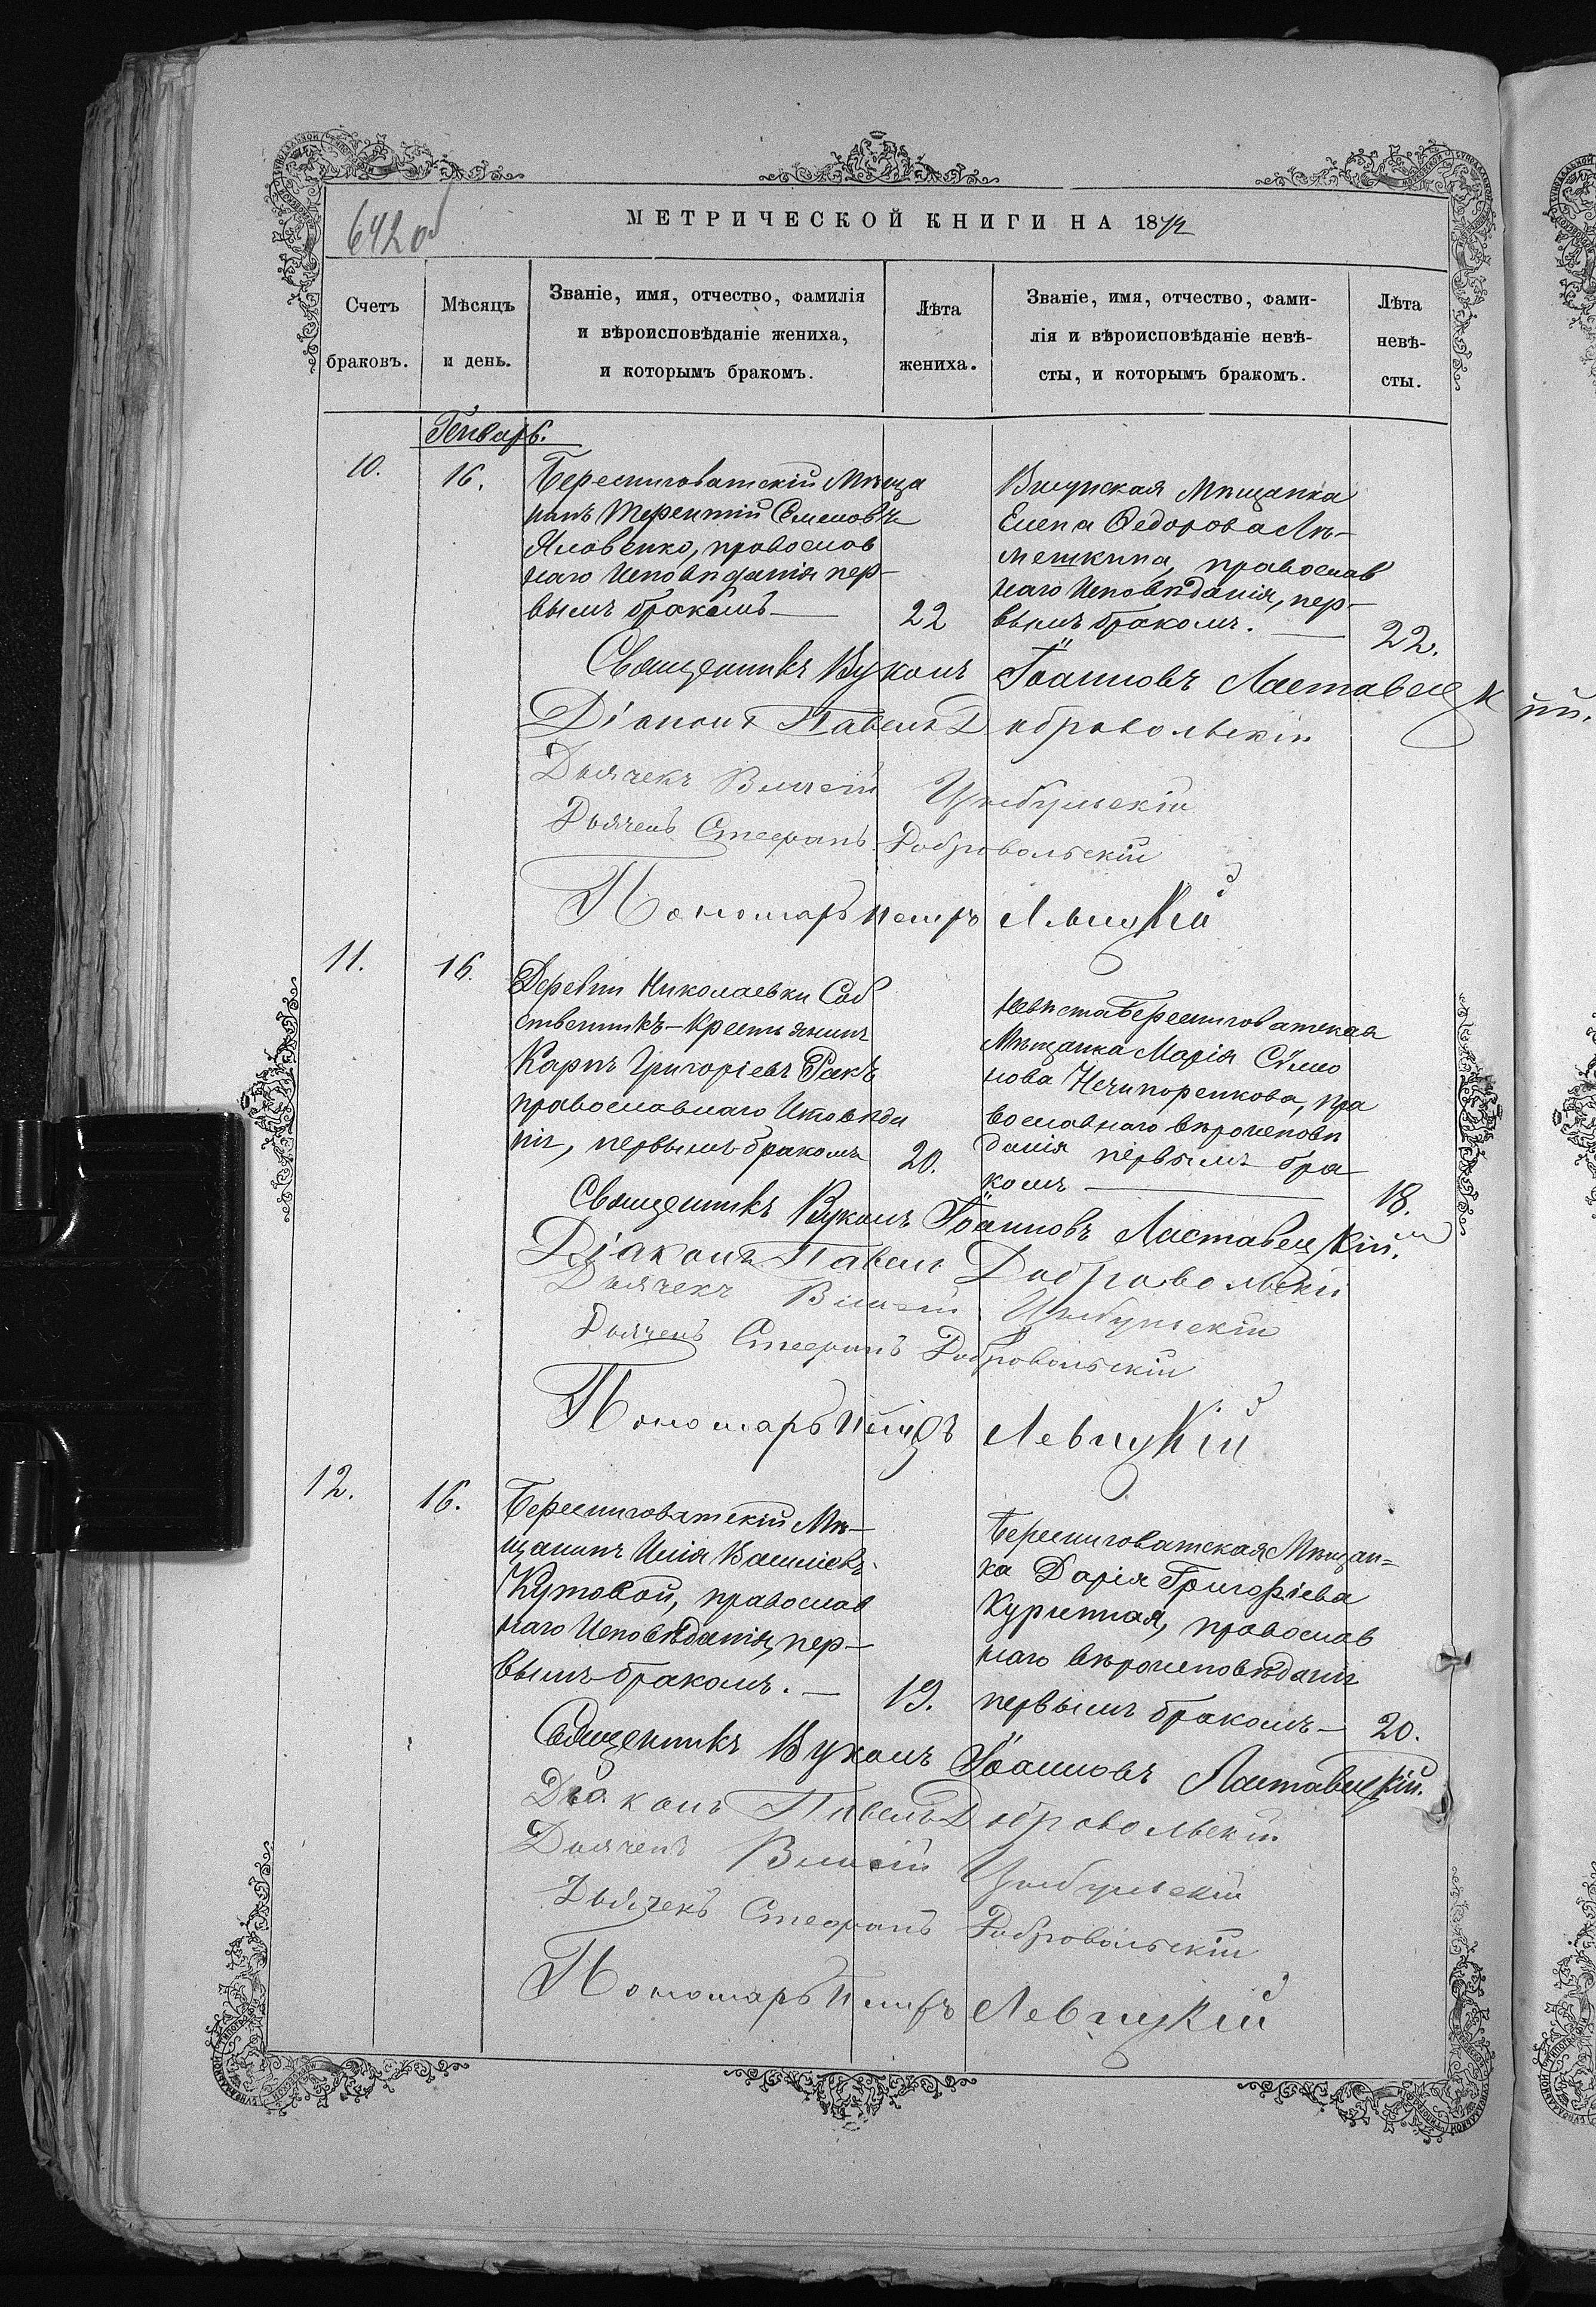 642 об
МЕТРИЧЕСКОЙ КНИГИ НА 1872
Счетъ браковъ.
Мѣсяцъ и день.
Званіе, имя, отчество, фамилія
и вѣроисповѣданіе жениха,
и которымъ бракомъ.
Лѣта
жениха.
Званіе, имя, отчество, фами-
лія и вѣроисповѣданіе невѣ-
сты, и которымъ бракомъ.
Лѣта
невѣ-
сты.
Генварь.
10.
16.
Бересниговатскій Мѣща
нинъ Терентій Семеновъ
Яловенко, православ
наго Исповѣданія пер-
вымъ бракомъ—
22
Висунская Мѣщанка
Елена Ѳедорова Ле-
мешкина, православ
наго Исповѣданія, пер-
вымъ бракомъ. —
22.
Священникъ Вуколъ Іоанновъ Ластавецкій.
Діаконъ Павелъ Добровольскій
Дьячекъ Цыбульскій
Дьячекъ Стефанъ Добровольскій
Пономарь Петръ Левицкій
11.
16.
Деревни Николаевки Соб
ственникъ-Крестьянинъ
Карпъ Григоріевъ Ракъ
православнаго Исповѣда
нія, первымъ бракомъ
20.
Невѣста Бересниговатская
Мѣщанка Марія Симо
нова Нечипоренкова, пра
вославнаго вѣроисповѣ
данія первымъ бра
комъ —
18.
Священникъ Вуколъ Іоанновъ Ластавецкій.
Діаконъ Павелъ Добровольскій
Дьячекъ Цыбульскій
Дьячекъ Стефанъ Добровольскій
Пономарь Петръ Левицкій
12.
16.
Бересниговатскій Мѣ-
щанинъ Илія Василіевъ
Кутовой, православ
наго Исповѣданія, пер-
вымъ бракомъ. —
19.
Бересниговатская Мѣщан=
ка Дарія Григоріева
Курипная, православ
наго вѣроисповѣданія
первымъ бракомъ—
20.
Священникъ Вуколъ Іоанновъ Ластавецкій.
Діаконъ Павелъ Добровольскій
Дьячекъ Цыбульскій
Дьячекъ Стефанъ Добровольскій
Пономарь Петръ Левицкій